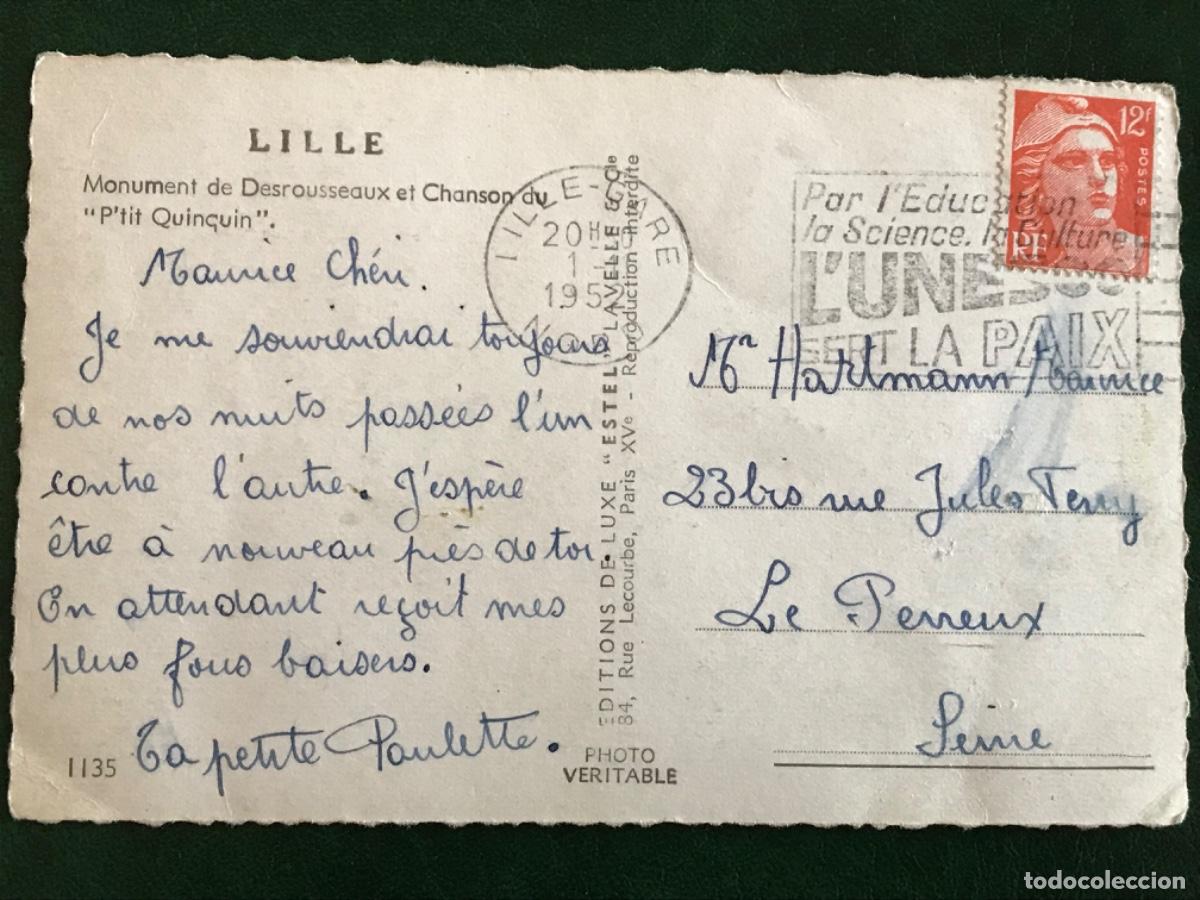 LILLE
Monument de Desrousseaux et Chanson du
"P'tit Quinquin".
Maurice Chéri.
Je me souviendrai toujours
de nos nuits passées l'un
contre l'autre. J'espère
être à nouveau près de toi.
En attendant reçoit mes
plus fous baisers.
Ta petite Paulette.
1135
EDITIONS DE LUXE "ESTEL", LAVELLE & Cie
84, Rue Lecourbe, Paris XVe - Reproduction Interdite
PHOTO
VERITABLE
LILLE-GARE
20H
1
1952
NORD
Par l'Education
la Science, la Culture
L'UNESCO
SERT LA PAIX
12f
POSTES
RF
Mr Hartmann Maurice
23bis rue Jules Ferry
Le Perreux
Seine
todocoleccion